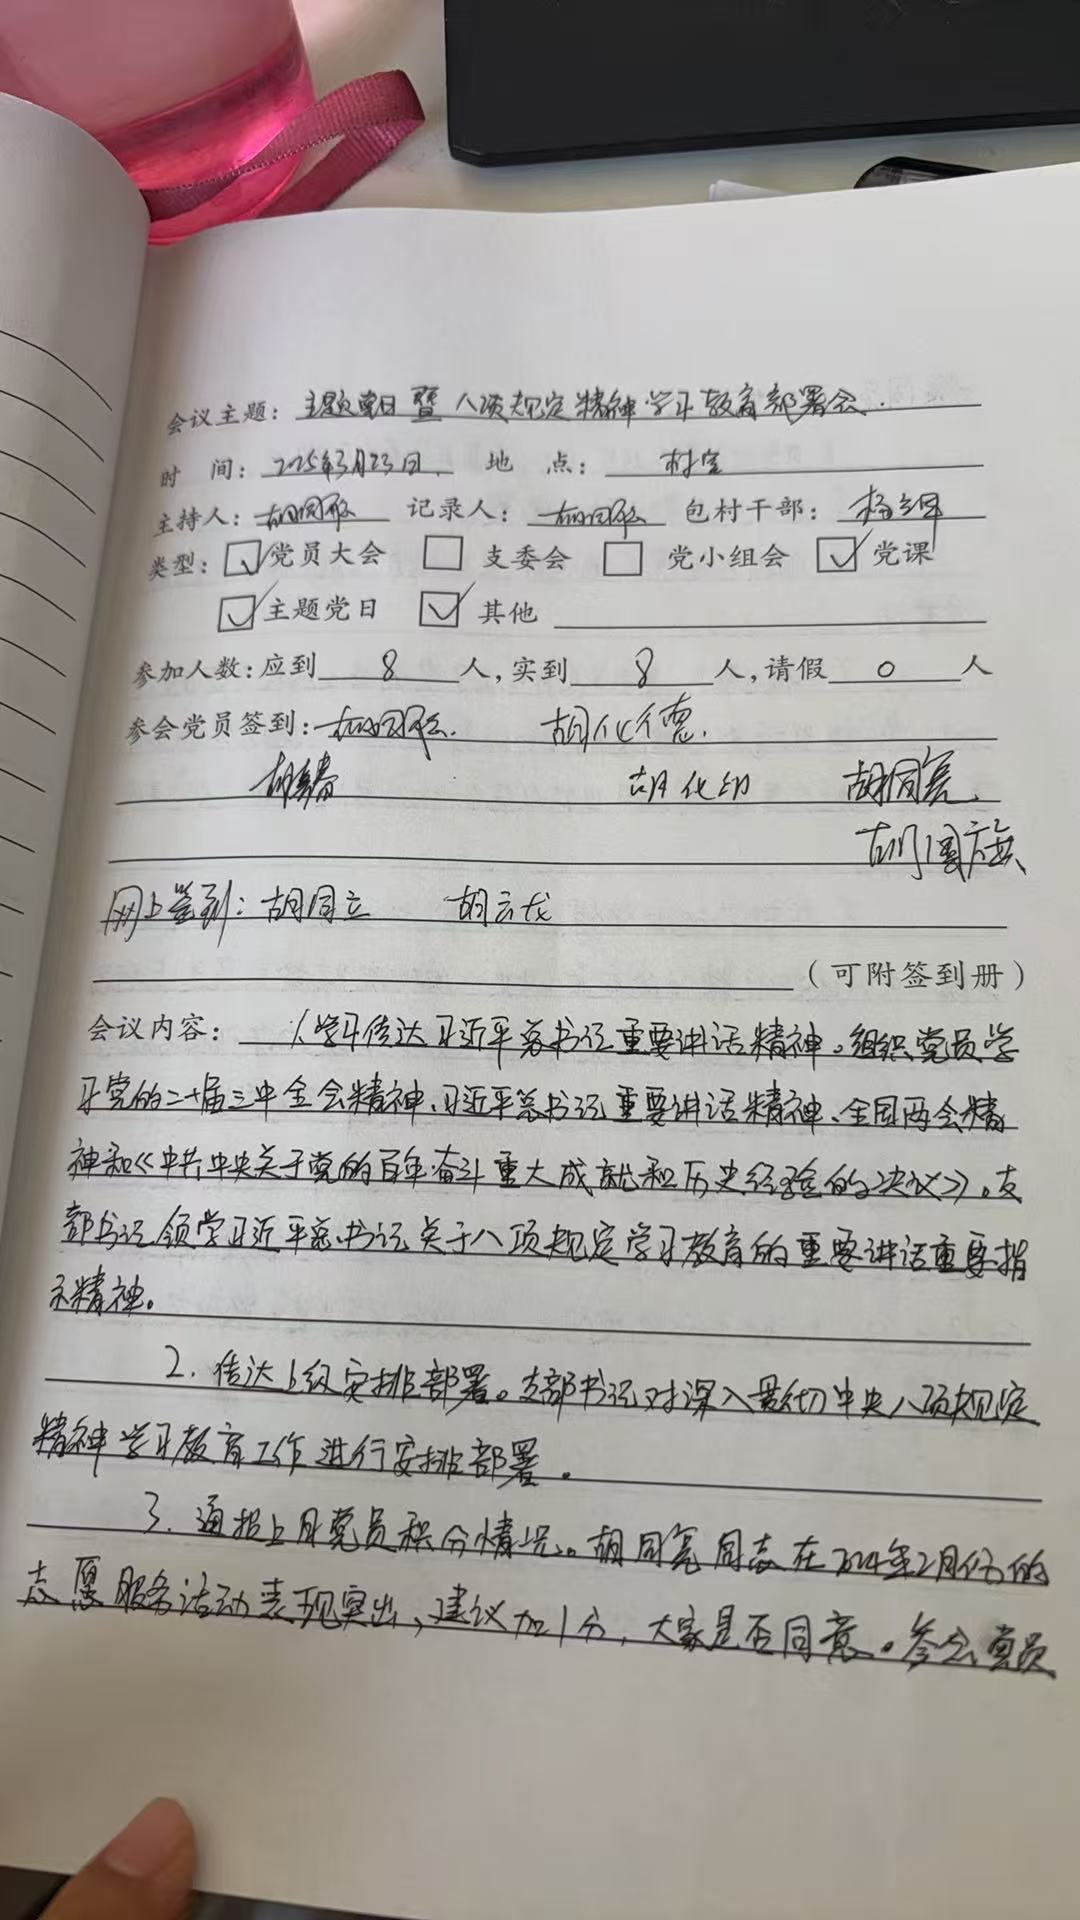 会议主题：主题党日暨八项规定精神学习教育部署会.
时 间：2025年3月23日. 地 点：村室
主持人：胡同 记录人：胡同 包村干部：杨
类型：☑党员大会 □ 支委会 □ 党小组会 ☑ 党课
☑主题党日 ☑ 其他
参加人数：应到 8 人，实到 8 人，请假 0 人
参会党员签到：胡同 胡化德.
胡春 胡化印 胡同亮.
胡国旗
网上签到：胡同立 胡云龙
（可附签到册）
会议内容： 1、学习传达习近平总书记重要讲话精神。组织党员学
习党的二十届三中全会精神、习近平总书记重要讲话精神、全国两会精
神和《中共中央关于党的百年奋斗重大成就和历史经验的决议》。支
部书记领学习近平总书记关于八项规定学习教育的重要讲话重要指
示精神。
2. 传达上级安排部署。支部书记对深入贯彻中央八项规定
精神学习教育工作进行安排部署。
3. 通报上月党员积分情况。胡同亮同志在2024年2月份的
志愿服务活动表现突出，建议加1分，大家是否同意。参会党员